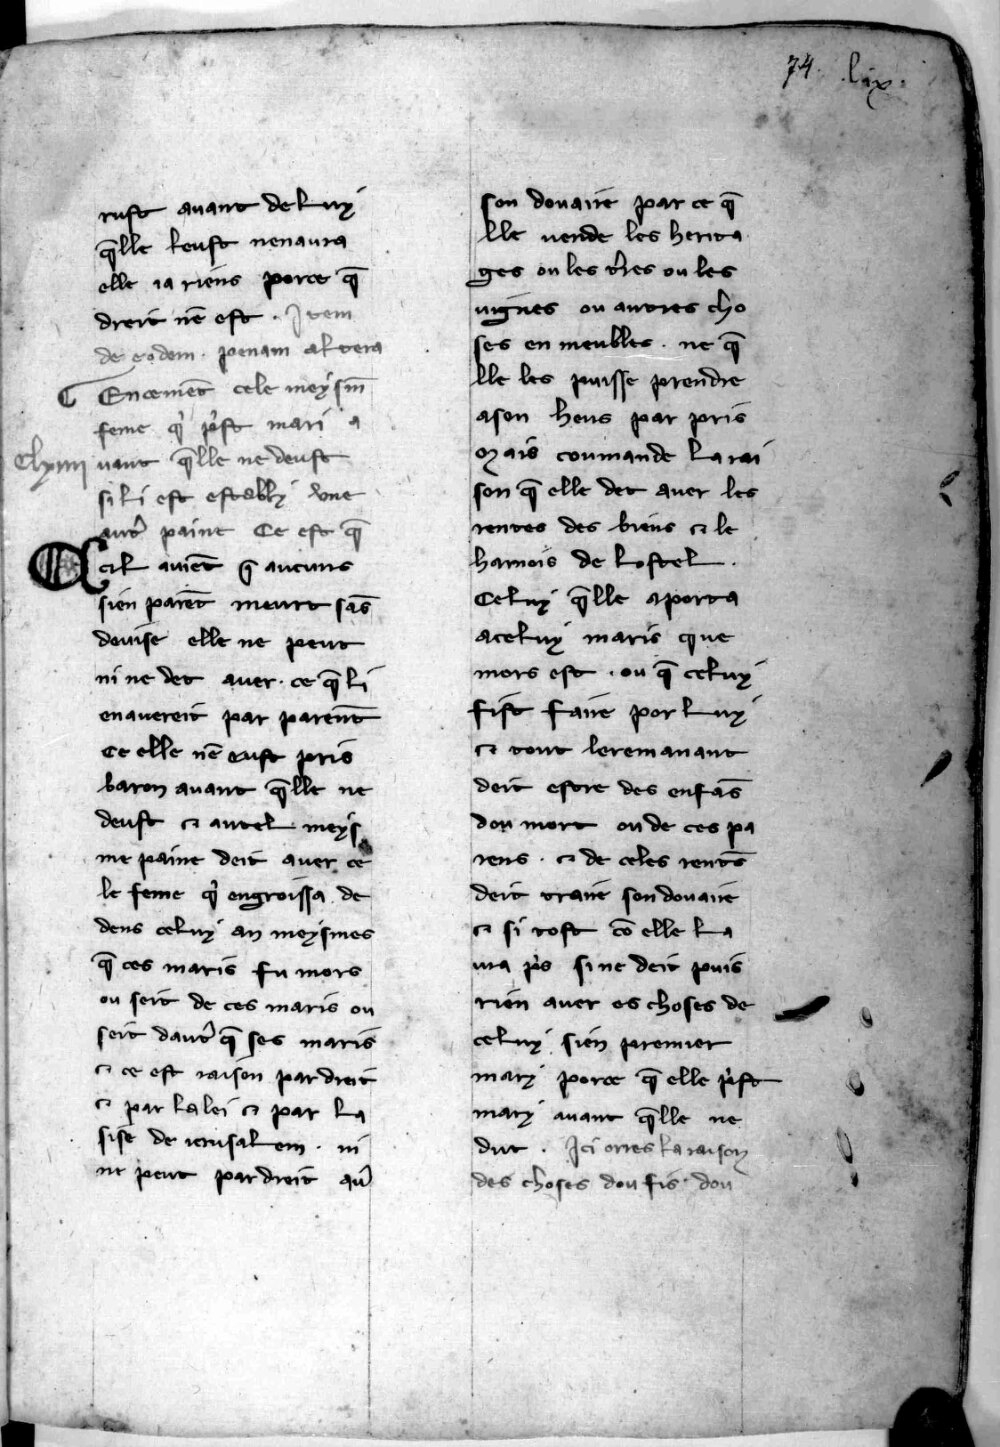 74. .lix.
rust auant de luy
q̄lle leust nenaura
elle ia riens porce q̄
dreit nē est . Item
de eodem . penam altera
Encemēt cele meysm̄
feme q' p'st mari a
clxiiii
uant q̄lle ne deust
si li est estably vne
aut' paine Ce est q̄
cil auiēt q̄ aucuns
sien parēt meurt sās
deuise elle ne peut
ni ne det auer . ce q̄ li
enauereit par parent
Ce elle nē eust pris
baron auant q̄lle ne
deust ⁊ autel meys
me paine deit auer ce
le feme q' engroissa de
dens celuy an meysmes
q̄ ces maris fu mors
ou seit de ces maris ou
seit daut' q̄ ses maris
⁊ ce est raison par dreit
⁊ par la lei ⁊ par la
sise de ierusalem . ni
ne peut par dreit au'
son douaire par ce q̄
lle uende les herita
ges ou les t'res ou les
uignes ou autres cho
ses en meubles . ne q̄
lle les puisse prendre
a son heus par pris
Mais coumande la rai
son q̄ elle det auer les
rentes des biens ⁊ le
harnois de lostel .
Celuy q̄lle aporta
a celuy maris que
mors est . ou q̄ celuy
fist faire por luy
⁊ tout le remanant
deit estre des enfās
dou mort ou de ces pa
rens . ⁊ de celes rentes
deit traire son douaire
⁊ si tost cō elle la
ura p's si ne deit puis
rien auer es choses de
celuy sien premier
mary porce q̄ elle p'st
mary auant q̄lle ne
dut . Ici orres la raison
des choses dou fis dou